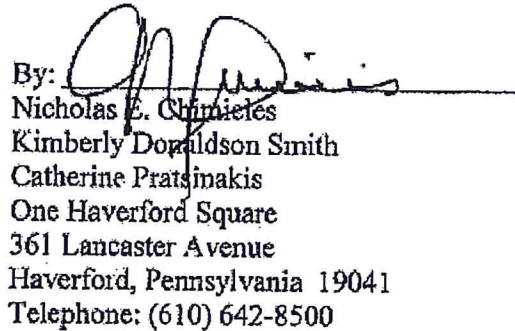 By:
Nicholas E. Chimicles
Kimberly Donaldson Smith
Catherine Pratsinakis
One Haverford Square
361 Lancaster Avenue
Haverford, Pennsylvania 19041
Telephone: (610) 642-8500